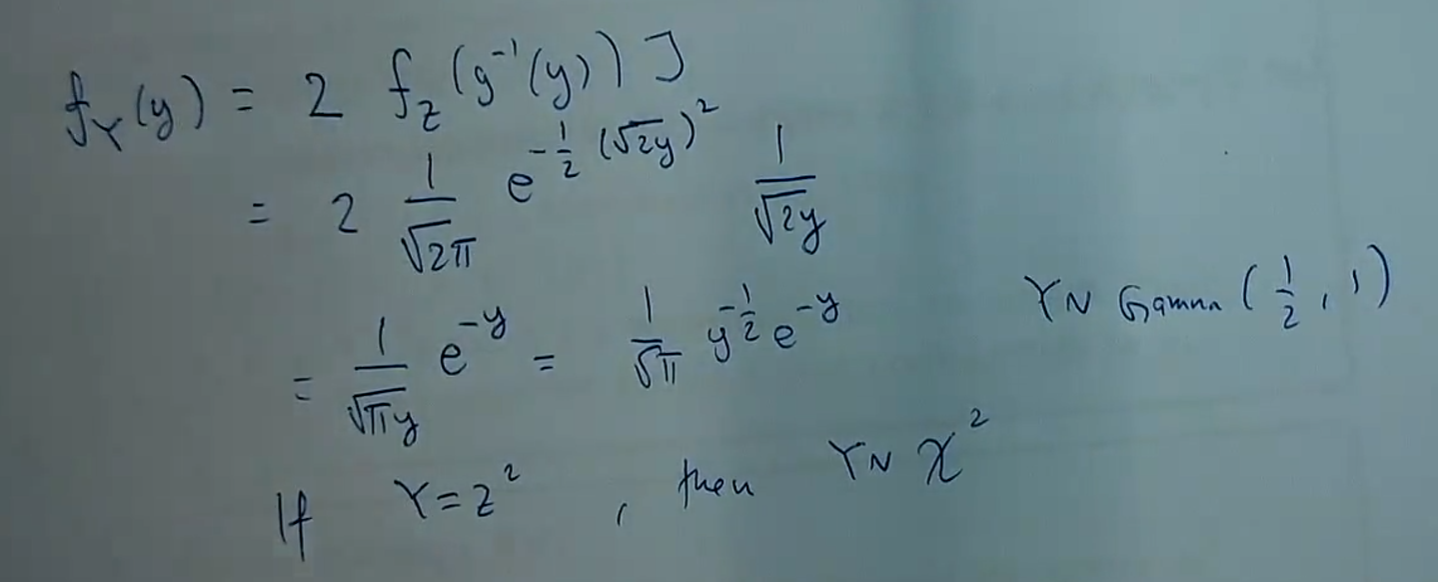 f_Y(y) = 2 f_Z(g⁻¹(y)) J
= 2 1/√2π e^{-1/2 (√2y)²} 1/√2y
= 1/√πy e^{-y} = 1/√π y^{-1/2} e^{-y}
Y~ Gamma (1/2, 1)
If Y=Z², then Y~ χ²